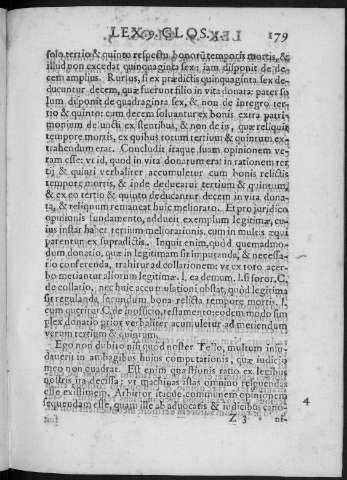 LEX. 9. GLOS. 179
solo tertio & quinto respectu honorũ temporis mortis, &
illud non excedat quinquaginta sex: iam disponit de de-
cem amplius. Rursus, si ex prædictis quinquaginta sex de-
ducuntur decem, quæ fuerunt filio in vita donata: pater so
lum disponit de quadraginta sex, & non de integro ter-
tio & quinto: cum decem soluantur ex bonis extra patri
monium de functi existentibus, & non de iis, quæ reliquit
tempore mortis, ex quibus totum tertium & quintum ex-
trahendum erat. Concludit itaque suam opinionem ve-
ram esse: vt id, quod in vita donatum erat in rationem ter
tij & quinti verbaliter accumuletur cum bonis relictis
tempore mortis, & inde deducatur tertium & quintum,
& ex eo tertio & quinto deducantur decem in vita dona-
ta, & reliquum retineat huic meliorato. Et pro juridico
opinionis fundamento, adducit exemplum legitimæ, cu-
ius instar habet tertium meliorationis, cum in multis æqui
parentur ex supradictis. Inquit enim, quòd quemadmo-
dum donatio, quæ in legitimam fit imputanda, & necessa-
rio conferenda, trahitur ad collationem: vt ex toto acer-
bo metiantur aliorum legitimæ. l. ea demum. l. si soror. C.
de collatio, nec huic accumulationi obstat, quòd legitima
fit regulanda secundum bona relicta tempore mortis. l.
cum quæritur C. de inofficio. testamento: eodem modo sim
plex donatio prior verbaliter acumuletur ad metiendum
verum tertium & quintum.
Ego non dubito nisi quod noster Tello, multum insu-
dauerit in ambagibus huius computationis, quæ iudicio
meo non quadrat. Est enim quæstionis ratio ex legibus
nostris ita decissa: vt machinas istas omnino respuendas
esse existimem. Arbitror itaque communem opinionem
sequendam esse, quam ille ab aduocatis & iudicibus cano-
4
Z 3 ni-